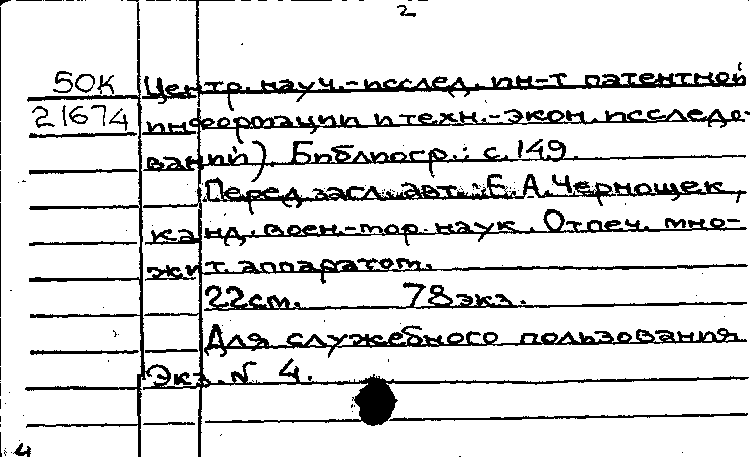 2
50К Центр. науч.-исслед. ин-т патентной
21674 информации и техн.-экон. исследо-
ваний). Библиогр.: с. 149.
Перед загл. авт.: Е. А. Чернощек,
канд. воен.-мор. наук. Отпеч. мно-
жит. аппаратом.
22см. 78 экз.
Для служебного пользования
Экз. № 4.
4